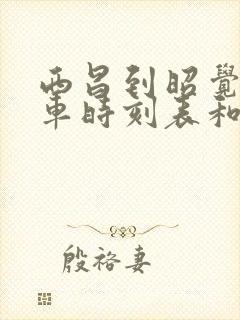 西昌到昭覺
車時刻表和
殷袼妻